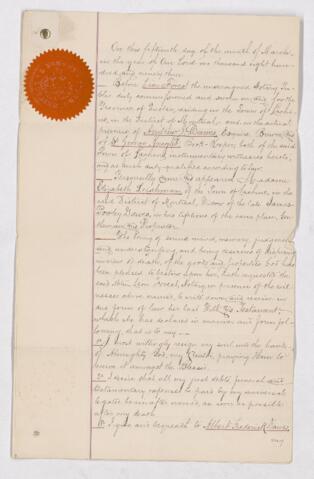 On this fifteenth day of the month of March
in the year of Our Lord one thousand eight hun-
dred and ninety three.
Before Leon Forest the undersigned Notary Pu-
blic duly commissioned and sworn in and for the
Province of Quebec, residing in the Town of Lachi-
ne, in the District of Montreal, and in the actual
presence of Andrew J. Dawes, Esquire, Brewer, and
of George Book-Keeper, both of the said
Town of Lachine, instrumentary witnesses hereto,
and as such duly qualified according to law.
Personally came and appeared Madame
Elizabeth Leishman of the Town of Lachine, in the
said District of Montreal, Widow of the late James
Powley Dawes, in his lifetime of the same place, Gen-
tleman and Proprietor.
Who being of sound mind, memory, judgment
and understanding and being desirous of disposing
in view of death, of the goods and property God has
been pleased to bestow upon her, hath requested the
said Notary in presence of the wit-
nesses above named, to write down and receive in
due form of law her last Will and Testament:
which she has declared in manner and form fol-
lowing, that is to say:
I most willingly resign my soul into the hands
of Almighty God, my Creator, praying Him to
receive it amongst the Blessed.
2o I desire that all my just debts, funeral and
testamentary expenses be paid by my universal
legatee hereinafter named, as soon as possible
after my death.
I give and bequeath to Albert Frederick Dawes,
my